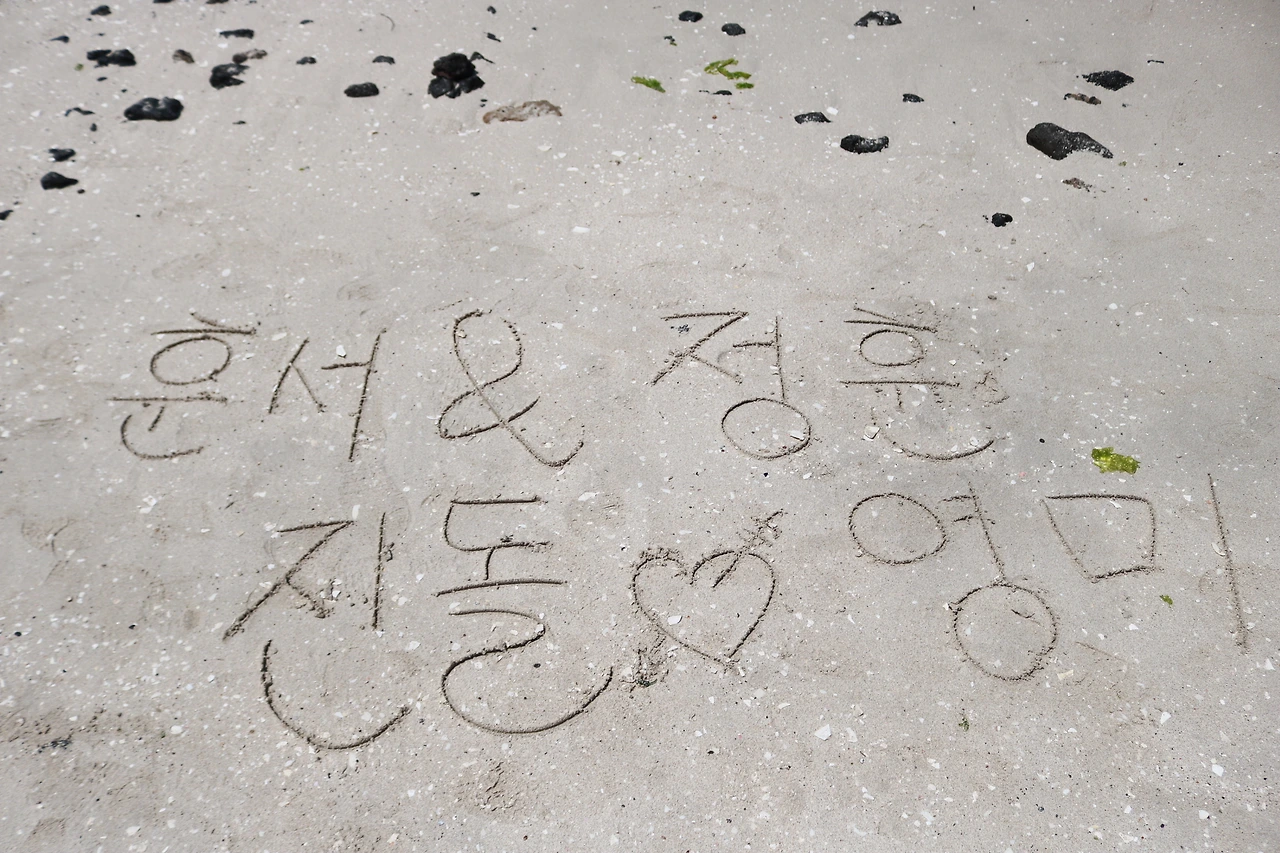 훈서 & 정훈
진돌 ♡ 영미